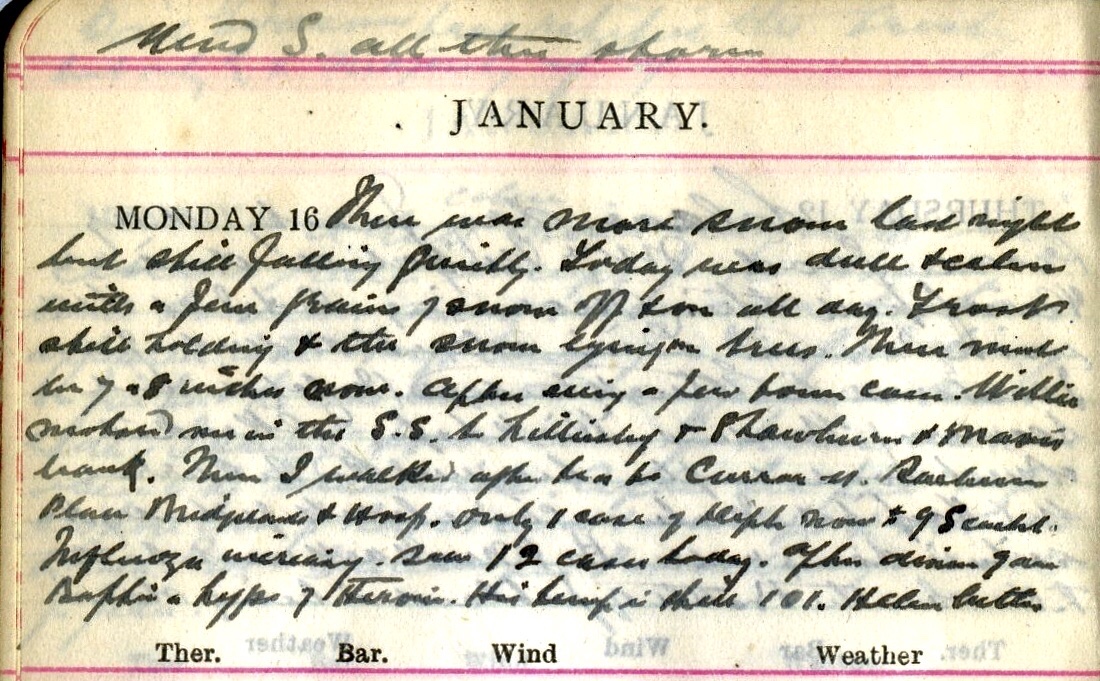 Wind S. all thro storm
JANUARY.
MONDAY 16 There was more snow last night
but still falling quietly. Today was dull & calm
with a few grains of snow off & on all day. Frost
still holding & the snow lying on trees. There must
be 7 or 8 inches now. After seeing a few town cases Willie
motored me in the S.S. to &
bank. Then I walked after tea to Curran st.
Place & Hosp. Only 1 case of Diph now & 9 Scarlet.
Influenza increasing. Saw 12 cases today. After dinner gave
a hypo of Heroin. His temp is still 101. Helen better
Ther. Bar. Wind Weather